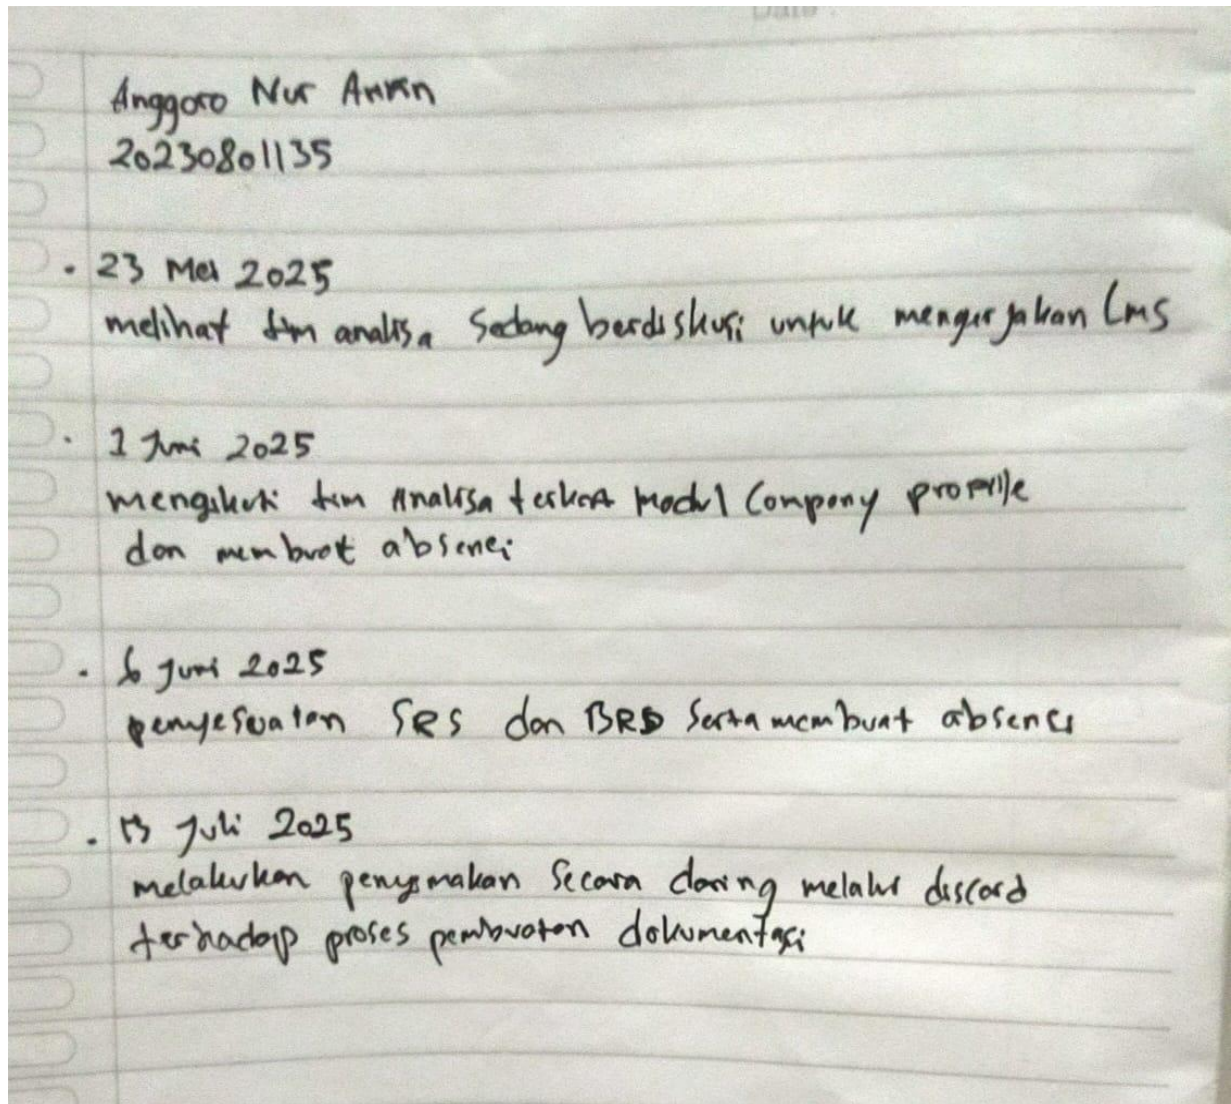 Date :
Anggoro Nur
20230801135
. 23 Mei 2025
melihat tim analisa Sedang berdiskusi untuk mengerjakan LMS
. 1 Juni 2025
mengikuti tim Analisa terkait Modul Company profile
dan membuat absensi
. 6 Juni 2025
penyesuaian SRS dan BRD Serta membuat absensi
. 13 Juli 2025
melakukan penyimakan Secara daring melalui discord
terhadap proses pembuatan dokumentasi